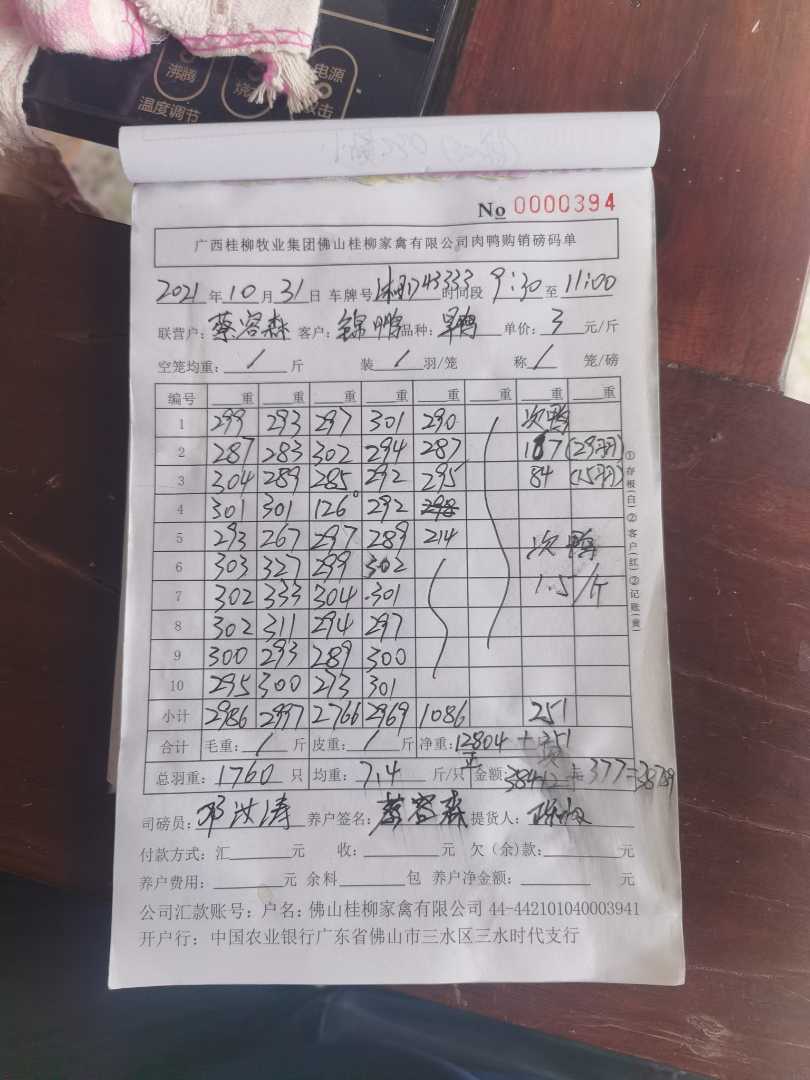 沸腾
电源
温度调节
No 0000394
广西桂柳牧业集团佛山桂柳家禽有限公司肉鸭购销磅码单
2021年10月31日 车牌号 43333 时间段 9:30 至 11:00
联营户: 蔡容森 客户: 锦鹏 品种: 单价: 3 元/斤
空笼均重: / 斤 装 / 羽/笼 称 / 笼/磅
编号 重 重 重 重 重 重 重 重
1 299 293 297 301 290 次鸭
2 287 283 302 294 287 167 (29羽)
3 304 289 285 292 295 84 (15羽)
4 301 301 126 292
5 293 267 297 289 214 次鸭
6 303 327 299 302
7 302 333 304 301 1.5/斤
8 302 311 294 297
9 300 293 289 300
10 295 300 273 301
小计 2986 2997 2766 2969 1086 251
合计 毛重: / 斤 皮重: / 斤 净重: 12804 + 251
正 次
总羽重: 1760 只 均重: 7.4 斤/只 金额: 38412 + 377 = 38789
司磅员: 邓汝涛 养户签名: 蔡容森 提货人:
付款方式: 汇 元 收: 元 欠(余)款: 元
养户费用: 元 余料 包 养户净金额: 元
公司汇款账号: 户名: 佛山桂柳家禽有限公司 44-442101040003941
开户行: 中国农业银行广东省佛山市三水区三水时代支行
①存根(白)②客户(红)②记账(黄)